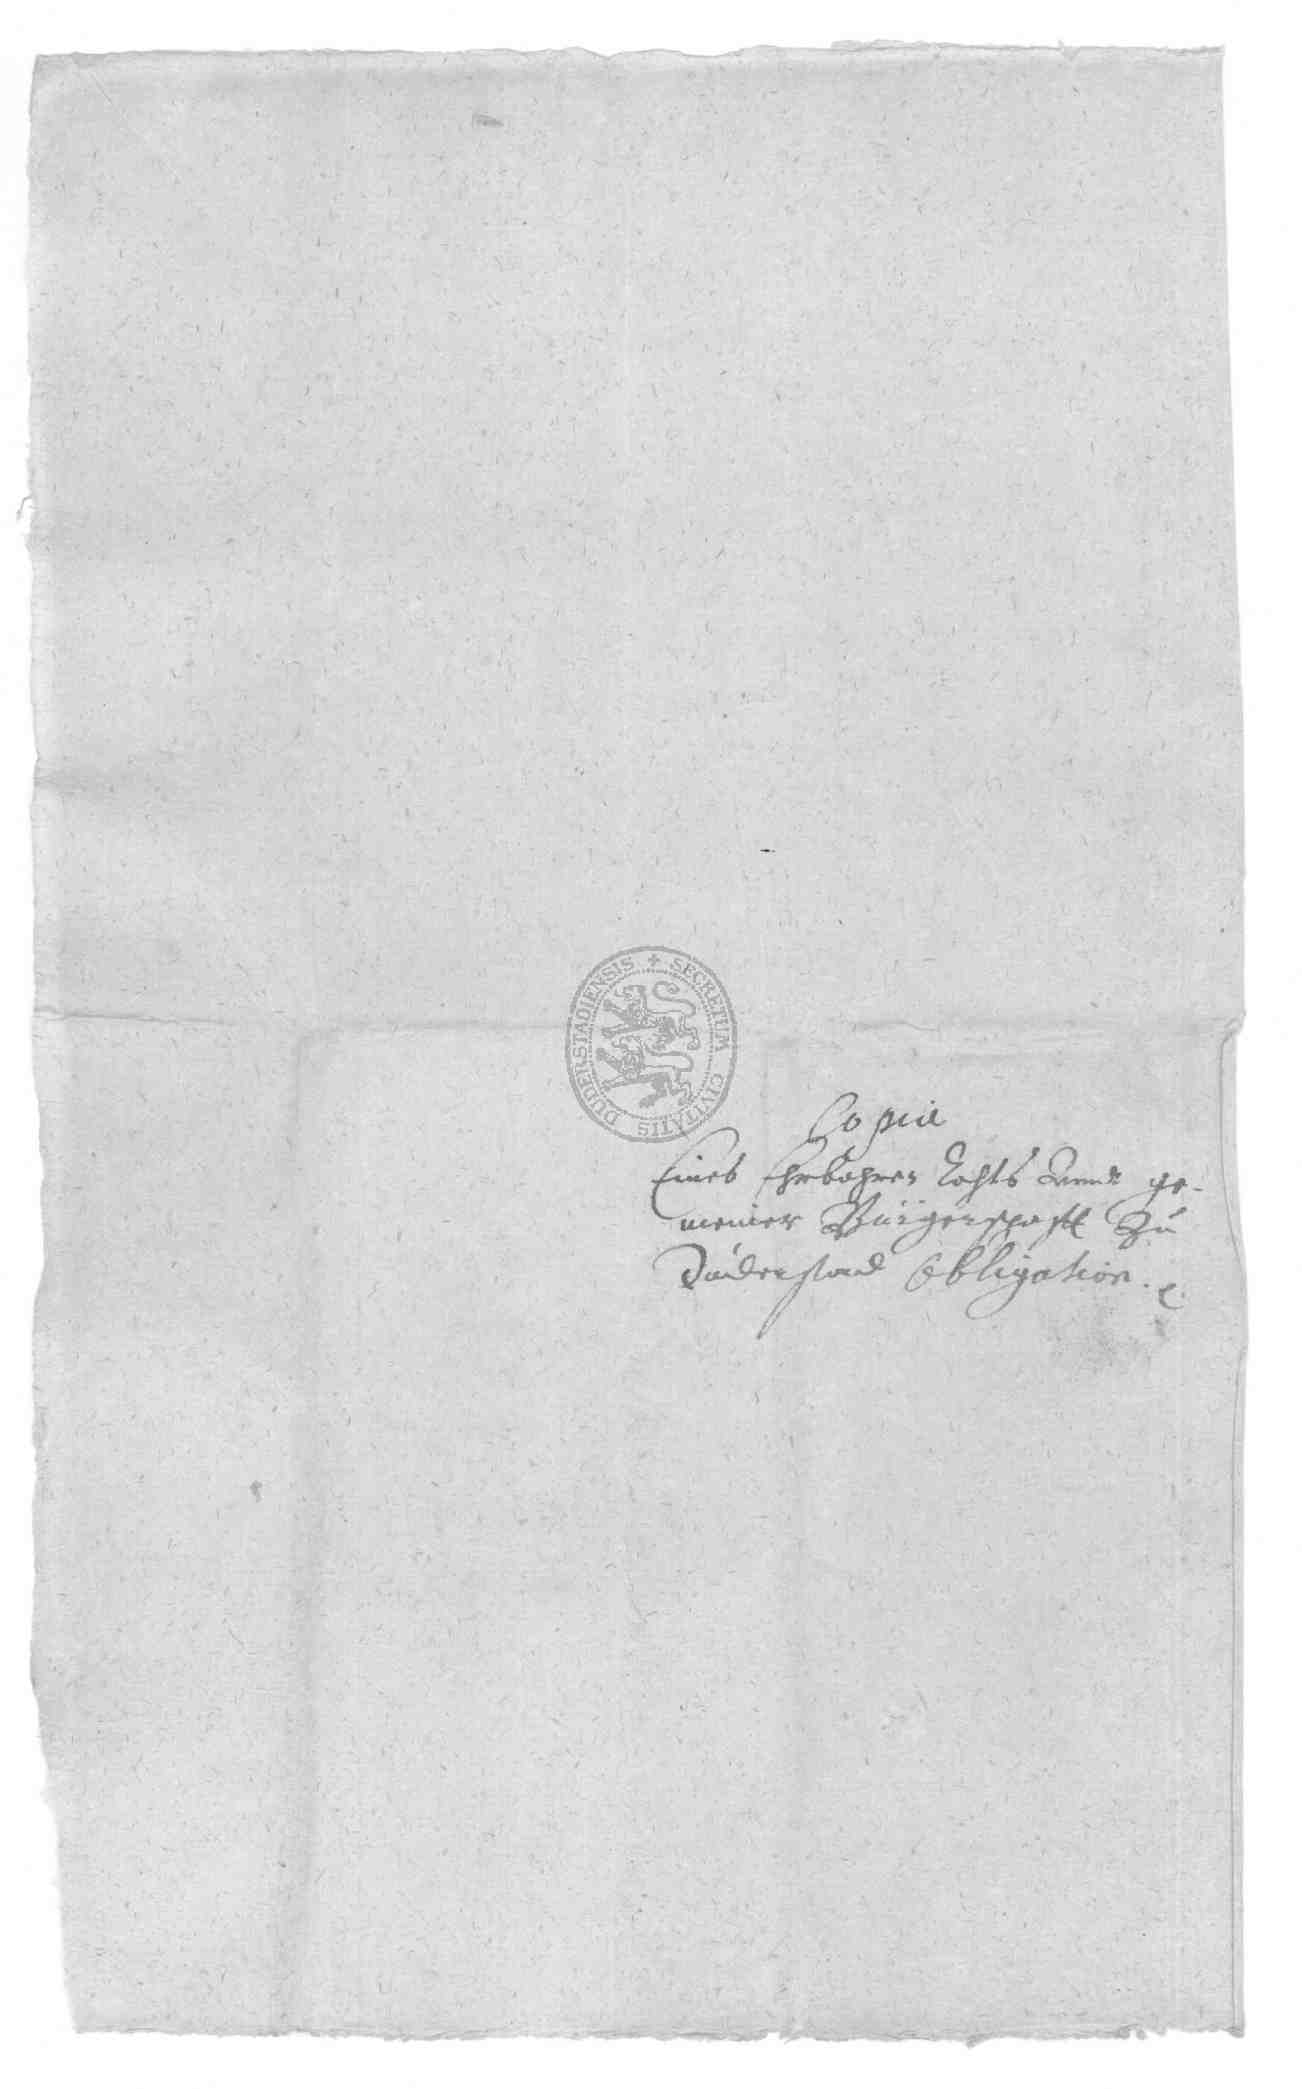 SECRETUM CIVITATIS DUDERSTADIENSIS
Copia
Eines Ehrbahren Rahts Vnndt ge-
meiner Bürgerschafft Zu
Duderstad Obligation.